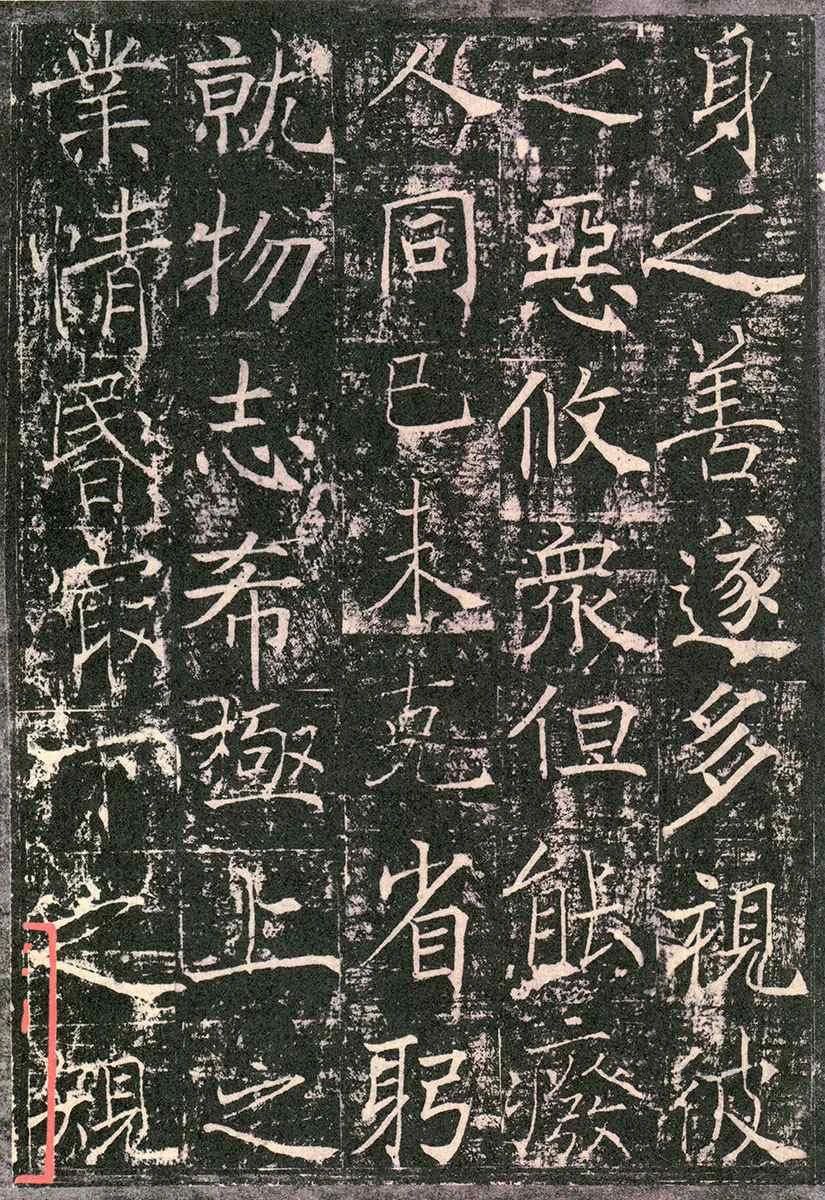 身之善遂多視彼
之惡攸衆但能癈
人同已未克省躬
就物志希極上之
業情昬冣下之觀